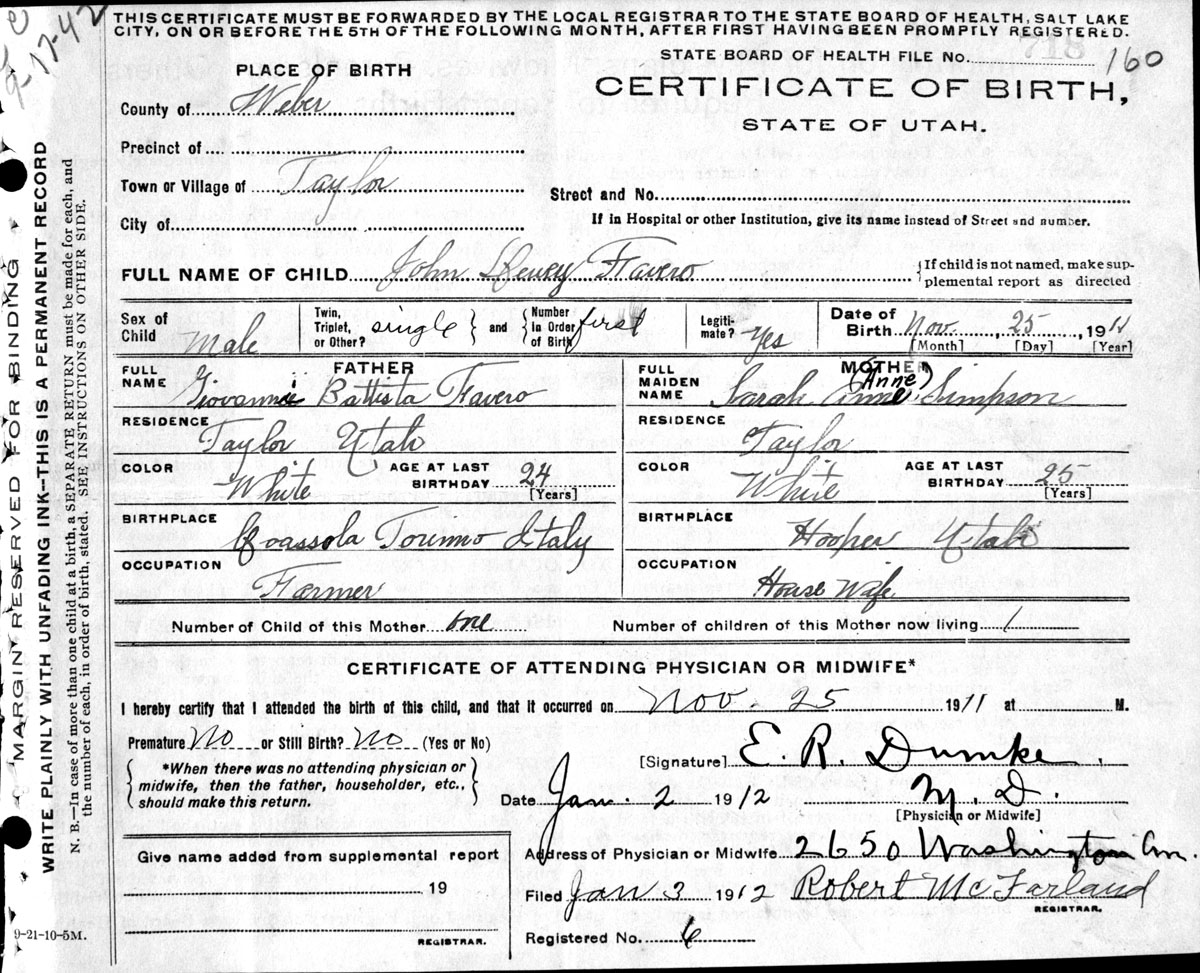 THIS CERTIFICATE MUST BE FORWARDED BY THE LOCAL REGISTRAR TO THE STATE BOARD OF HEALTH, SALT LAKE
CITY, ON OR BEFORE THE 5TH OF THE FOLLOWING MONTH, AFTER FIRST HAVING BEEN PROMPTLY REGISTERED.
STATE BOARD OF HEALTH FILE No. 718 160
PLACE OF BIRTH
CERTIFICATE OF BIRTH,
STATE OF UTAH.
County of Weber
Precinct of
Town or Village of Taylor
Street and No.
City of
If in Hospital or other Institution, give its name instead of Street and number.
FULL NAME OF CHILD John Dewey Favero
{If child is not named, make sup-
plemental report as directed
Sex of Child Male
Twin, Triplet, or Other? single } and { Number in Order of Birth first
Legiti-mate? Yes
Date of Birth Nov. 25, 1911
[Month] [Day] [Year]
FATHER
FULL NAME Giovanni Battista Favero
MOTHER
FULL MAIDEN NAME Sarah Anne (Anne) Simpson
RESIDENCE Taylor Utah
RESIDENCE Taylor
COLOR White AGE AT LAST BIRTHDAY 24 [Years]
COLOR White AGE AT LAST BIRTHDAY 25 [Years]
BIRTHPLACE Coassola Torino Italy
BIRTHPLACE Hooper Utah
OCCUPATION Farmer
OCCUPATION House Wife
Number of Child of this Mother one
Number of children of this Mother now living 1
CERTIFICATE OF ATTENDING PHYSICIAN OR MIDWIFE*
I hereby certify that I attended the birth of this child, and that it occurred on Nov. 25 1911 at M.
Premature No or Still Birth? No (Yes or No)
{ *When there was no attending physician or
midwife, then the father, householder, etc.,
should make this return. }
[Signature] E. R. Dumke
Date Jan. 2 1912
M. D.
[Physician or Midwife]
Give name added from supplemental report
19
REGISTRAR.
Address of Physician or Midwife 2650 Washington Av.
Filed Jan 3 1912 Robert McFarland
REGISTRAR.
Registered No. 6
9-21-10-5M.
MARGIN RESERVED FOR BINDING
WRITE PLAINLY WITH UNFADING INK--THIS IS A PERMANENT RECORD
N. B.—In case of more than one child at a birth SEPARATE RETURN must be made for each, and
the number of each, in order of birth, stated. SEE INSTRUCTIONS ON OTHER SIDE.